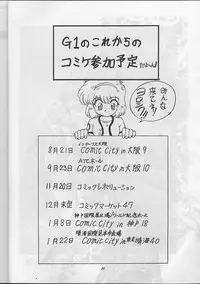 G1のこれからの
コミケ参加予定
だよーん!!
みんな
来てネ!
ヨロシク!
インテックス大阪
8月21日 Comic City in 大阪 9
ATCホール
9月23日 Comic City in 大阪 10
11月20日 コミックレボリューション
12月末 コミックマーケット47
神戸国際展示場
1月8日 Comic City in 神戸 18
晴海国際見本市会場
1月22日 Comic City in 東京晴海 40